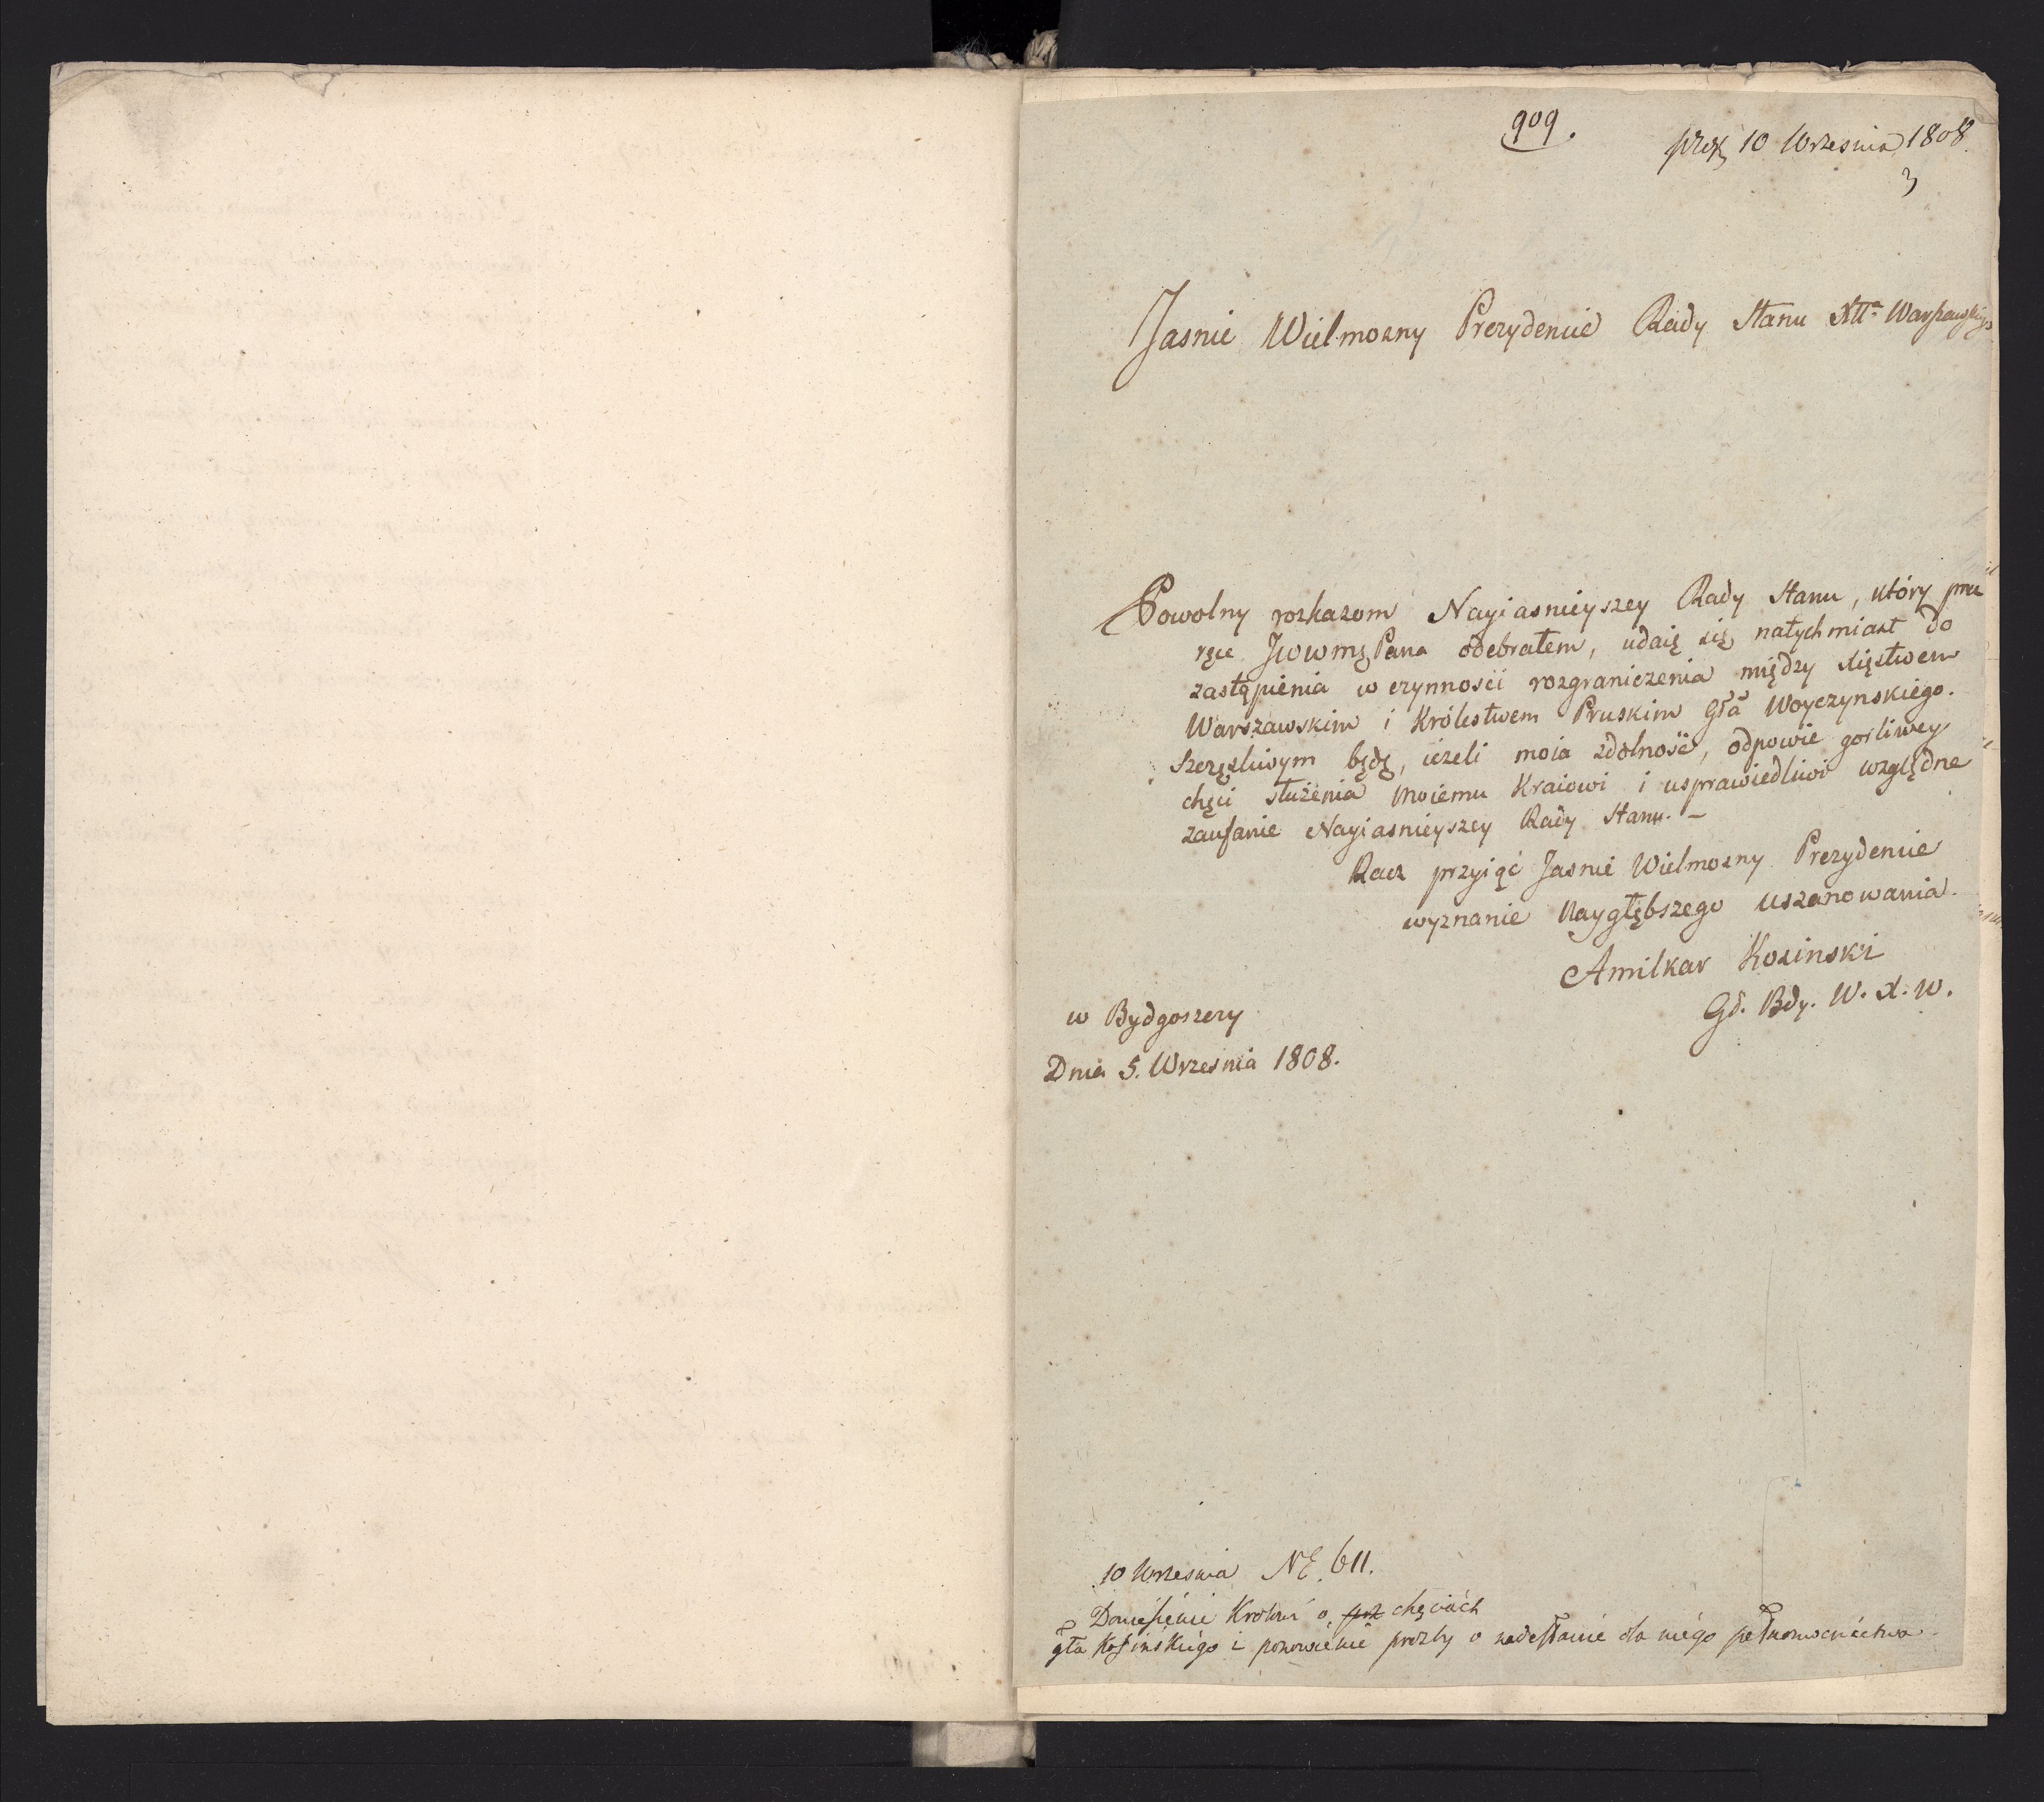 909.
prez 10 Wrzesnia 1808.
3
Jasnie Wielmozny Prezydencie Rady Stanu Xttª Warszawskiego
Powolny rozkazom Nayiasnieyszey Rady Stanu, który przez
ręce JWWmę Pana odebrałem, udaię się natychmiast do
zastąpienia w czynności rozgraniczenia między Xięstwem
Warszawskim i Królestwem Pruskim Gła Woyczynskiego.
Szczęsliwym będę, ieżeli moia zdolność, odpowie gorliwey
chęci służenia moiemu Kraiowi i usprawiedliwi względne
zaufanie Nayiasnieyszey Rady Stanu. –
Racz przyiąć Jasnie Wielmozny Prezydencie
wyznanie naygłębszego uszanowania.
Amilkar Kosinski
Gł. Bdy. W. X. W.
w Bydgoszczy
Dnia 5. Wrzesnia 1808.
10 Wrzesnia NE. 611.
Doniesienie Krolowi o prz chęciach
gła Kosińskiego i ponowienie prozby o nadesłanie dla niego pełnomocnictwa